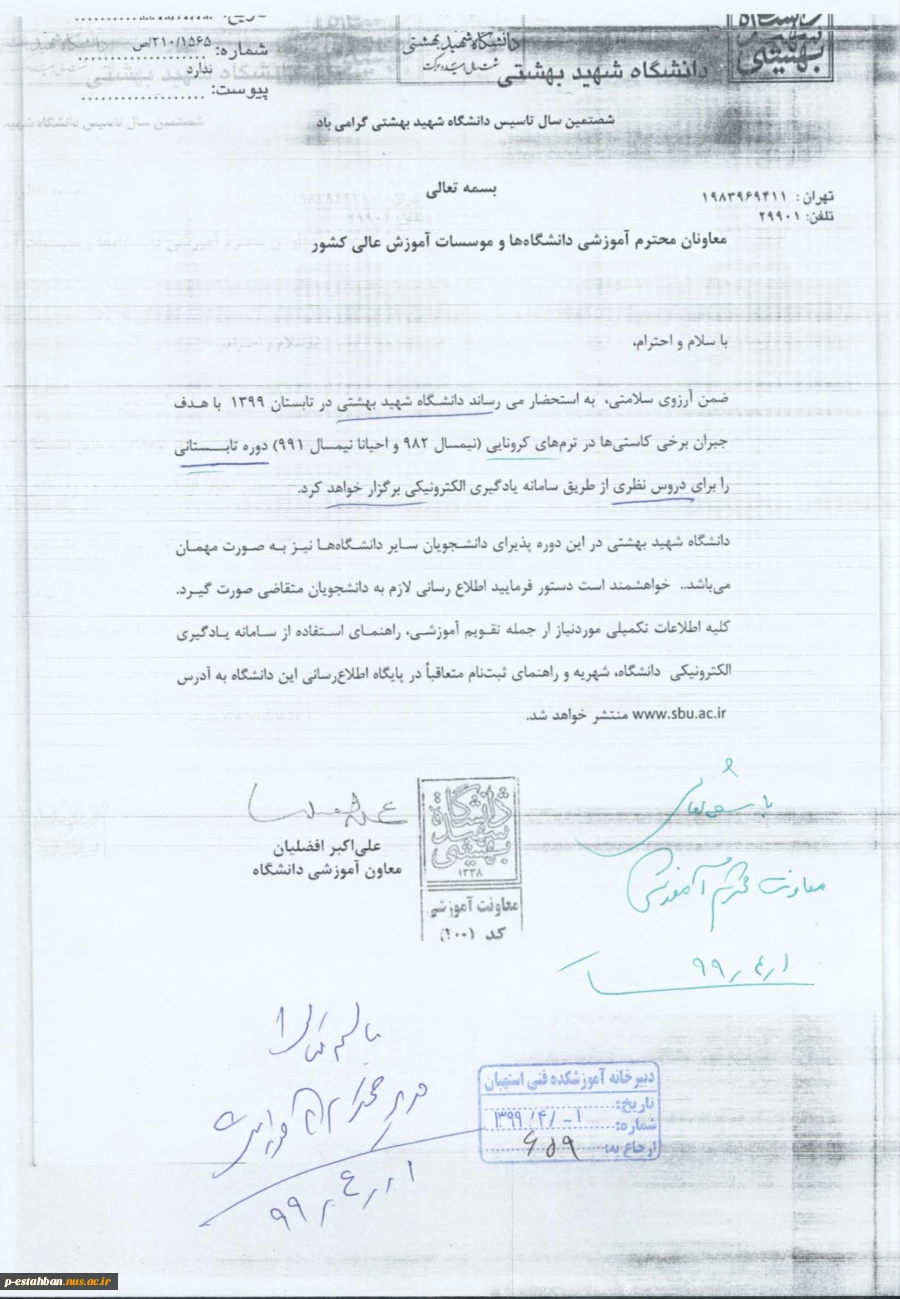 شماره: ۲۱۰/۱۵۶۵/ص
ندارد
پیوست:
دانشگاه شهید بهشتی
دانشگاه شهید بهشتی
شصتمین سال تاسیس دانشگاه شهید بهشتی گرامی باد
بسمه تعالی
تهران: ۱۹۸۳۹۶۹۴۱۱
تلفن: ۲۹۹۰۱
معاونان محترم آموزشی دانشگاه‌ها و موسسات آموزش عالی کشور
با سلام و احترام،
ضمن آرزوی سلامتی، به استحضار می رساند دانشگاه شهید بهشتی در تابستان ۱۳۹۹ با هدف
جبران برخی کاستی‌ها در ترم‌های کرونایی (نیمسال ۹۸۲ و احیانا نیمسال ۹۹۱) دوره تابستانی
را برای دروس نظری از طریق سامانه یادگیری الکترونیکی برگزار خواهد کرد.
دانشگاه شهید بهشتی در این دوره پذیرای دانشجویان سایر دانشگاه‌ها نیز به صورت مهمان
می‌باشد.. خواهشمند است دستور فرمایید اطلاع رسانی لازم به دانشجویان متقاضی صورت گیرد.
کلیه اطلاعات تکمیلی موردنیاز ار جمله تقویم آموزشی، راهنمای استفاده از سامانه یادگیری
الکترونیکی دانشگاه، شهریه و راهنمای ثبت‌نام متعاقباً در پایگاه اطلاع‌رسانی این دانشگاه به آدرس
www.sbu.ac.ir منتشر خواهد شد.
علی‌اکبر افضلیان
معاون آموزشی دانشگاه
دانشگاه شهید بهشتی
۱۳۳۸
معاونت آموزشی
کد (۲۰۰)
معاونت محترم آموزشی
۹۹/۴/۱
مدیر محترم آموزش
۹۹/۴/۱
دبیرخانه آموزشکده فنی استهبان
تاریخ: ۱۳۹۹/۴/-۱
شماره: ۶۵۹
ارجاع به:
p-estahban.nus.ac.ir